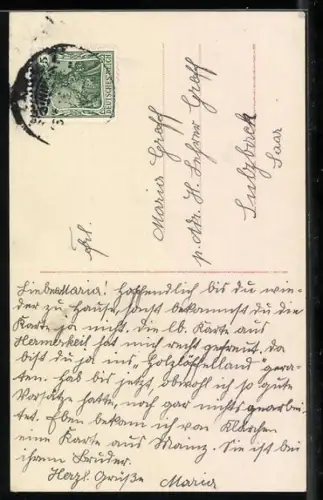 5
DEUTSCHES REICH
Frl.
Maria Groff
p. Adr. H. Lehrer Groff
Sulzbach
Saar
Liebe Maria! Hoffendlich bis du wie-
der zu Hause, sonst bekommst du die
Karte ja nicht. Die lb. Karte aus
Hermeskeil hat mich recht gefreut. Da
bist du ja ins "Holzlöffelland" gera-
ten. Hab bis jetzt, obwohl ich so gute
Vorsätze hatte, noch gar nichts gearbei-
tet. Eben bekam ich von Klärchen
eine Karte aus Mainz. Sie ist bei
ihrem Bruder.
Herzl. Grüße Maria